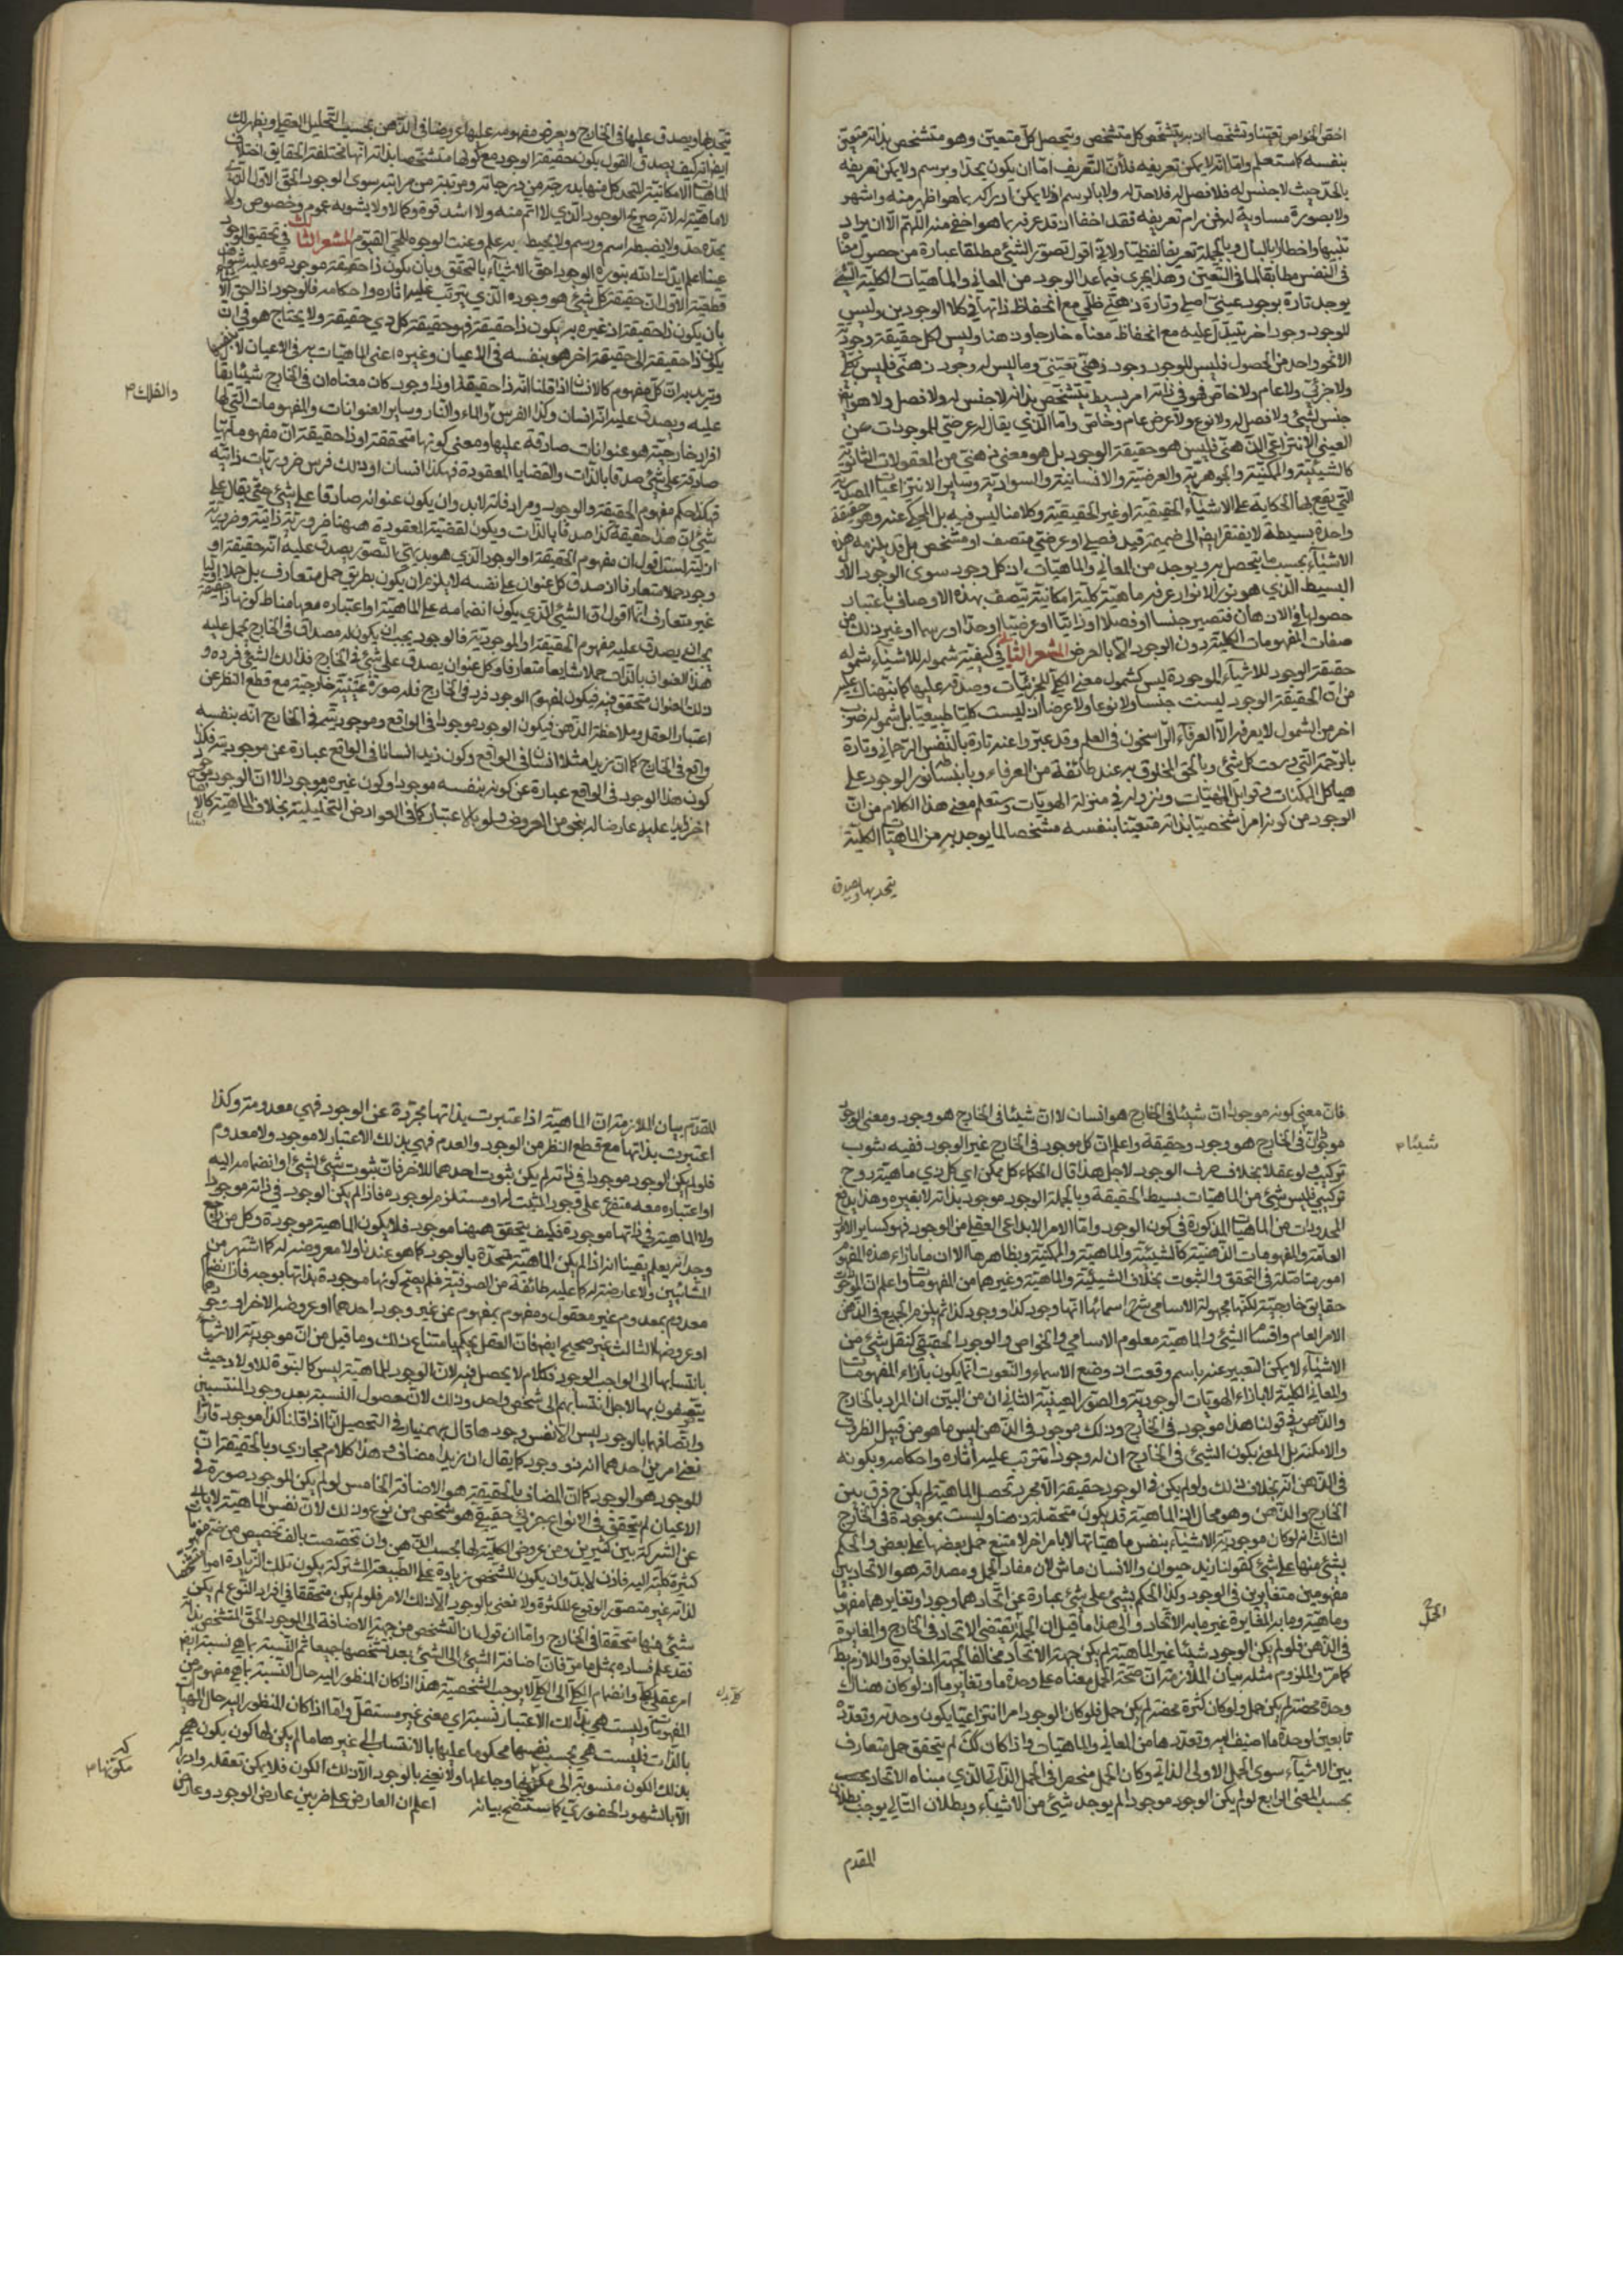 اخص الخواص تعينا وتشخصا اذ به يتشخص كل متشخص ويتحصل كل متعين وهو متشخص بذاته متعين
بنفسه كما ستعلم واما انه لا يمكن تعريفه فلان التعريف اما ان يكون بحد او برسم ولا يمكن تعريفه
بالحد حيث لا جنس له فلا فصل له فلا حد له ولا بالرسم اذ لا يمكن ادراكه بما هو اظهر منه واشهر
ولا بصورة مساوية له فمن رام تعريفه فقد اخطا اذ قد عرفه بما هو اخفى منه اللهم الا ان يراد
تنبيها واخطارا بالبال وبالجملة تعريفا لفظيا ولاني اقول تصور الشئ مطلقا عبارة من حصول معناه
في النفس مطابقا لما في العين وهذا يجري فيما عدا الوجود من المعاني والماهيات الكلية التي
يوجد تارة بوجود عيني اصيل وتارة ذهني ظلي مع انحفاظ ذاتها في كلا الوجودين وليس
للوجود وجود اخر يتبدل عليه مع انحفاظ معناه خارجا وذهنا وليس لكل حقيقة وجودية
الا نحو واحد من الحصول فليس للوجود وجود ذهني وما ليس له وجود ذهني فليس بكلي
ولا جزئي ولا عام ولا خاص فهو في ذاته امر بسيط متشخص بذاته لا جنس له ولا فصل ولا هو
جنس لشئ ولا فصل له ولا نوع ولا عرض عام وخاص واما الذي يقال له عرضي للموجودات من
المعنى الانتزاعي الذهني فليس هو حقيقة الوجود بل هو معنى ذهني من المعقولات الثانوية
كالشيئية والممكنية والجوهرية والعرضية والانسانية والسوادية وساير الانتزاعيات المصدرية
التي يقع بها الحكاية عن الاشياء الحقيقية او غير الحقيقية وكلامنا ليس فيه بل المحكي عنه وهو حقيقة
واحدة بسيطة لا يفتقر ايضا الى ضميمة قيد فصلي او عرضي مصنف او مشخص بل قد يلزمه هذه
الاشياء بحسب ما يتحصل به ويوجد من المعاني والماهيات اذ كل وجود سوى الوجود الاول
البسيط الذي هو نور الانوار عرفه ماهية كلية امكانية يتصف بهذه الاوصاف باعتبار
حصولها في الاذهان فتصير جنسا او فصلا او ذاتيا او عرضيا او حدا او رسما او غير ذلك من
صفات المفهومات الكلية دون الوجود الا بالعرض المشعر الثاني في كيفية شموله للاشياء شمول
حقيقة الوجود للاشياء الموجودة ليس كشمول معنى الكلي للجزئيات وصدقه عليها كما نبهناك عليه
من ان الحقيقة الوجود ليست جنسا ولا نوعا ولا عرضا اذ ليست كليا طبيعيا بل شموله ضرب
اخر من الشمول لا يعرفه الا العرفاء الراسخون في العلم وقد عبروا عنه تارة بالنفس الرحماني وتارة
بالرحمة التي وسعت كل شئ وبالحق المخلوق به عند طائفة من العرفاء وبانبساط نور الوجود على
هياكل الممكنات وقوابل الماهيات ونزوله في منزله الهويات وستعلم معنى هذا الكلام من ان
الوجود من كونه امرا شخصيا بذاته متعينا بنفسه مشخصا لما يوجد به من الماهيات الكلية
يتحد بها ويصدق
يتحد بها ويصدق عليها في الخارج ويعرض مفهومه عليها عروضا في الذهن بحسب التحليل العقلي ويظهر لك
ايضا انه كيف يصدق القول بكون حقيقة الوجود مع كونها متشخصا بذاتها انها مختلفة الحقايق اختلاف
الماهيات الامكانية المتحد كل منها بدرجة من درجاته ومرتبة من مراتبه سوى الوجود الحق الاول الذي
لا ماهية له لانه صريح الوجود الذي لا اتم منه ولا اشد قوة وكمالا ولا يشوبه عموم وخصوص ولا
يحده حد ولا يضبطه اسم ورسم ولا يحيط به علم وعنت الوجوه للحي القيوم المشعر الثالث في تحقيق الوجود
عينا اعلم ايدك الله بنوره الوجود احق الاشياء بالتحقق وبان يكون ذا حقيقة موجودة وعليه شواهد
قطعية الاول ان حقيقة كل شئ هو وجوده الذي يترتب عليه اثاره واحكامه فالوجود اذا احق الاشياء
بان يكون ذا حقيقة اذ غيره به يكون ذا حقيقة فهو حقيقة كل ذي حقيقة ولا يحتاج هو في ان
يكون ذا حقيقة الى حقيقة اخر فهو بنفسه في الاعيان وغيره اعني الماهيات به في الاعيان لا بانفسها
ونريد به ان كل مفهوم كالانسان اذا قلنا انه ذا حقيقة او ذا وجود كان معناه ان في الخارج شيئا يقال
عليه ويصدق عليه انه انسان وكذا الفرس والماء والنار وساير العنوانات والمفهومات التي لها
والفلك
افراد خارجية هو عنوانات صادقة عليها ومعنى كونها متحققة او ذا حقيقة ان مفهوماتها
صادقة على شئ صدقا بالذات والقضايا المعقودة فيه كهذا انسان او ذاك فرس ضروريات ذاتية
فهكذا حكم مفهوم الحقيقة والوجود ومرادفاته لا بد وان يكون عنوانه صادقا على شئ حتى يقال على
شئ ان هذا حقيقة كذا صدقا بالذات ويكون القضية المعقودة ههنا ضرورية ذاتية وضرورية
ازلية لست اقول ان مفهوم الحقيقة او الوجود الذي هو بديهي التصور يصدق عليه انه حقيقة او
وجود حملا متعارفا اذ صدق كل عنوان على نفسه لا يلزم ان يكون بطريق حمل متعارف بل حملا اوليا
غير متعارف انما اقول ان الشئ الذي يكون انضمامه على الماهية او اعتباره معها مناط كونها ذا حقيقة
يجب ان يصدق عليه مفهوم الحقيقة او الموجودية فالوجود يجب ان يكون له مصداق في الخارج يحمل عليه
هذا العنوان بالذات حملا شايعا متعارفا وكل عنوان يصدق على شئ في الخارج فذلك الشئ فرده و
ذلك العنوان متحقق فيه فيكون لمفهوم الوجود فرد في الخارج فله صورة عينية خارجية مع قطع النظر عن
اعتبار العقل وملاحظة الذهن فيكون الوجود موجودا في الواقع وموجوديته في الخارج انه بنفسه
واقع في الخارج كما ان زيدا مثلا انسان في الواقع وكون زيد انسانا في الواقع عبارة عن موجوديته فكذا
كون هذا الوجود في الواقع عبارة عن كونه بنفسه موجودا وكون غيره به موجودا لا ان للوجود وجود
اخر زايدا عليه عارضا له بنحو من العروض ولو بالاعتبار كما في العوارض التحليلية بخلاف الماهية كالانسان
فان معنى كونه موجودا ان شيئا في الخارج هو انسان لا ان شيئا في الخارج هو وجود ومعنى الوجود
موجود ان في الخارج هو وجود وحقيقة واعلم ان كل موجود في الخارج غير الوجود ففيه شوب
شيئا
تركيب ولو عقلا بخلاف صرف الوجود لاجل هذا قال الحكماء كل ممكن اي كل ذي ماهية زوج
تركيبي فليس شئ من الماهيات بسيط الحقيقة وبالجملة الوجود موجود بذاته لا بغيره وهذا يدفع
المحذورات من الماهيات المذكورة في كون الوجود واما الامر الانتزاعي العقلي من الوجود فهو كساير الامور
العامة والمفهومات الذهنية كالشيئية والماهية والممكنية ونظائرها الا ان ما بازاء هذه المفهوم
امور متاصلة في التحقق والثبوت بخلاف الشيئية والماهية وغيرهما من المفهومات واعلم ان الموجودات
حقايق خارجية لكنها مجهولة الاسامي شرح اسمائها انها وجود كذا ووجود كذا ثم يلزم الجميع في الذهن
الامر العام واقسام الشئ والماهية معلوم الاسامي والخواص والوجود الحقيقي لكل شئ من
الاشياء لا يمكن التعبير عنه باسم ونعت اذ وضع الاسماء والنعوت انما يكون بازاء المفهومات
والمعاني الكلية لا بازاء الهويات الوجودية والصور العينية الثاني ان من البين ان المراد بالخارج
والذهن في قولنا هذا موجود في الخارج وذلك موجود في الذهن ليس ما هو من قبيل الظرف
والامكنة بل المعنى بكون الشئ في الخارج ان له وجودا تترتب عليه آثاره واحكامه وبكونه
في الذهن انه بخلاف ذلك ولو لم يكن في الوجود حقيقة الا مجرد تحصل الماهية لم يكن ح فرق بين
الخارج والذهن وهو محال اذ الماهية قد يكون متحصلة ذهنا وليست بموجودة في الخارج
الثالث انه لو كان موجودية الاشياء بنفس ماهياتها لا بامر اخر لامتنع حمل بعضها على بعض والحكم
بشئ منها على شئ كقولنا زيد حيوان والانسان ماش لان مفاد الحمل ومصداقه هو الاتحاد بين
مفهومين متغايرين في الوجود وكذا الحكم بشئ على شئ عبارة عن اتحادهما وجودا وتغايرهما مفهوما
وماهية وما به المغايرة غير ما به الاتحاد والى هذا ما قيل ان الحمل يقتضي الاتحاد في الخارج والمغايرة
الحمل
في الذهن فلو لم يكن الوجود شيئا غير الماهية لم يكن جهة الاتحاد مخالفا لجهة المغايرة واللازم بط
كما مر والملزوم مثله بيان الملازمة ان صحة الحمل معناه على وحدة ما وتغاير ما اذ لو كان هناك
وحدة محضة لم يكن حمل ولو كان كثرة محضة لم يكن حمل فلو كان الوجود امرا انتزاعيا يكون وحدته وتعدده
تابعين لوحدة ما اضيف اليه وتعدده من المعاني والماهيات واذا كان كك لم يتحقق حمل متعارف
بين الاشياء سوى الحمل الاولي الذاتي وكان الحمل منحصرا في الحمل الذاتي الذي مبناه الاتحاد بحسب
بحسب المعنى الرابع لو لم يكن الوجود موجودا لم يوجد شئ من الاشياء وبطلان التالي يوجب بطلان
المقدم
المقدم بيان الملازمة ان الماهية اذا اعتبرت بذاتها مجردة عن الوجود فهي معدومة وكذا
اعتبرت بذاتها مع قطع النظر من الوجود والعدم فهي بذلك الاعتبار لا موجود ولا معدوم
فلو لم يكن الوجود موجودا في ذاته لم يكن ثبوت احدهما للاخر فان ثبوت شئ لشئ او انضمامه اليه
او اعتباره معه متفرع على وجود المثبت له او مستلزم لوجوده فاذا لم يكن الوجود في ذاته موجودا
ولا الماهية في ذاتها موجودة فكيف يتحقق ههنا موجود فلا يكون الماهية موجودة وكل من راجع
وجدانه يعلم يقينا انه اذا لم يكن الماهية متحدة بالوجود كما هو عندنا ولا معروضة له كما اشتهر من
المشائيين ولا عارضة له كما عليه طائفة من الصوفية فلم يصح كونها موجودة بذاتها بوجه فان انضمام
معدوم بمعدوم غير معقول ومفهوم بمفهوم من غير وجود احدهما او عروضه للاخر او وجودهما
او عروضهما لثالث غير صحيح ايضا فان العقل يحكم بامتناع ذلك وما قيل من ان موجودية الاشياء
بانتسابها الى الواجب الوجود فكلام لا يحصل فيه لان الوجود للماهية ليس كالبنوة للاولاد حيث
يتصفون بها لاجل انتسابهم الى شخص واحد وذلك لان حصول النسبة بعد وجود المنتسبين
واتصافها بالوجود ليس الا نفس وجودها قال بهمنيار في التحصيل انا اذا قلنا كذا موجود فانا
نعني امرين احدهما انه ذو وجود كما يقال ان زيدا مضاف وهذا كلام مجازي وبالحقيقة ان
الموجود هو الوجود كما ان المضاف بالحقيقة هو الاضافة الخامس لو لم يكن للوجود صورة في
الاعيان لم يتحقق في الانواع جزئي حقيقي هو شخص من نوع وذلك لان نفس الماهية لا يابى
عن الشركة بين كثيرين ومن عروض الكلية لها بحسب الذهن وان تخصصت بالف تخصيص من ضم مفهومات
كثيرة كلية اليه فاذن لا بد وان يكون للشخص زيادة على الطبيعة المشتركة يكون تلك الزيادة امرا متشخصا
لذاته غير متصور الوقوع للكثرة ولا نعني بالوجود الا ذلك الامر فلو لم يكن متحققا في افراد النوع لم يكن
شئ منها متحققا في الخارج واما ان قول ان التشخص من جهة الاضافة الى الوجود الحق المتشخص بذاته
فقد علم فساده بمثل ما مر فان اضافة الشئ الى الشئ بعد تشخصهما جميعا ثم النسبة بما هي نسبة ايضا
امر عقلي كلي وانضمام الكلي الى الكلي لا يوجب الشخصية هذا اذا كان المنظور اليه حال النسبة بما هي مفهوم من
المفهومات وليست هي بذلك الاعتبار نسبة اي معنى غير مستقل واما اذا كان المنظور اليه حال الماهية
بالذات فليست هي بحسب نفسها محكوما عليها بالانتساب الى غيرها ما لم يكن لها كون يكون هي
بذلك الكون منسوبة الى مكونها وجاعلها ولا نعني بالوجود الا ذلك الكون فلا يمكن تعقله وادراكه
مكونها
الا بالشهود الحضوري كما سيتضح بيانه اعلم ان العارض على ضربين عارض الوجود وعارض